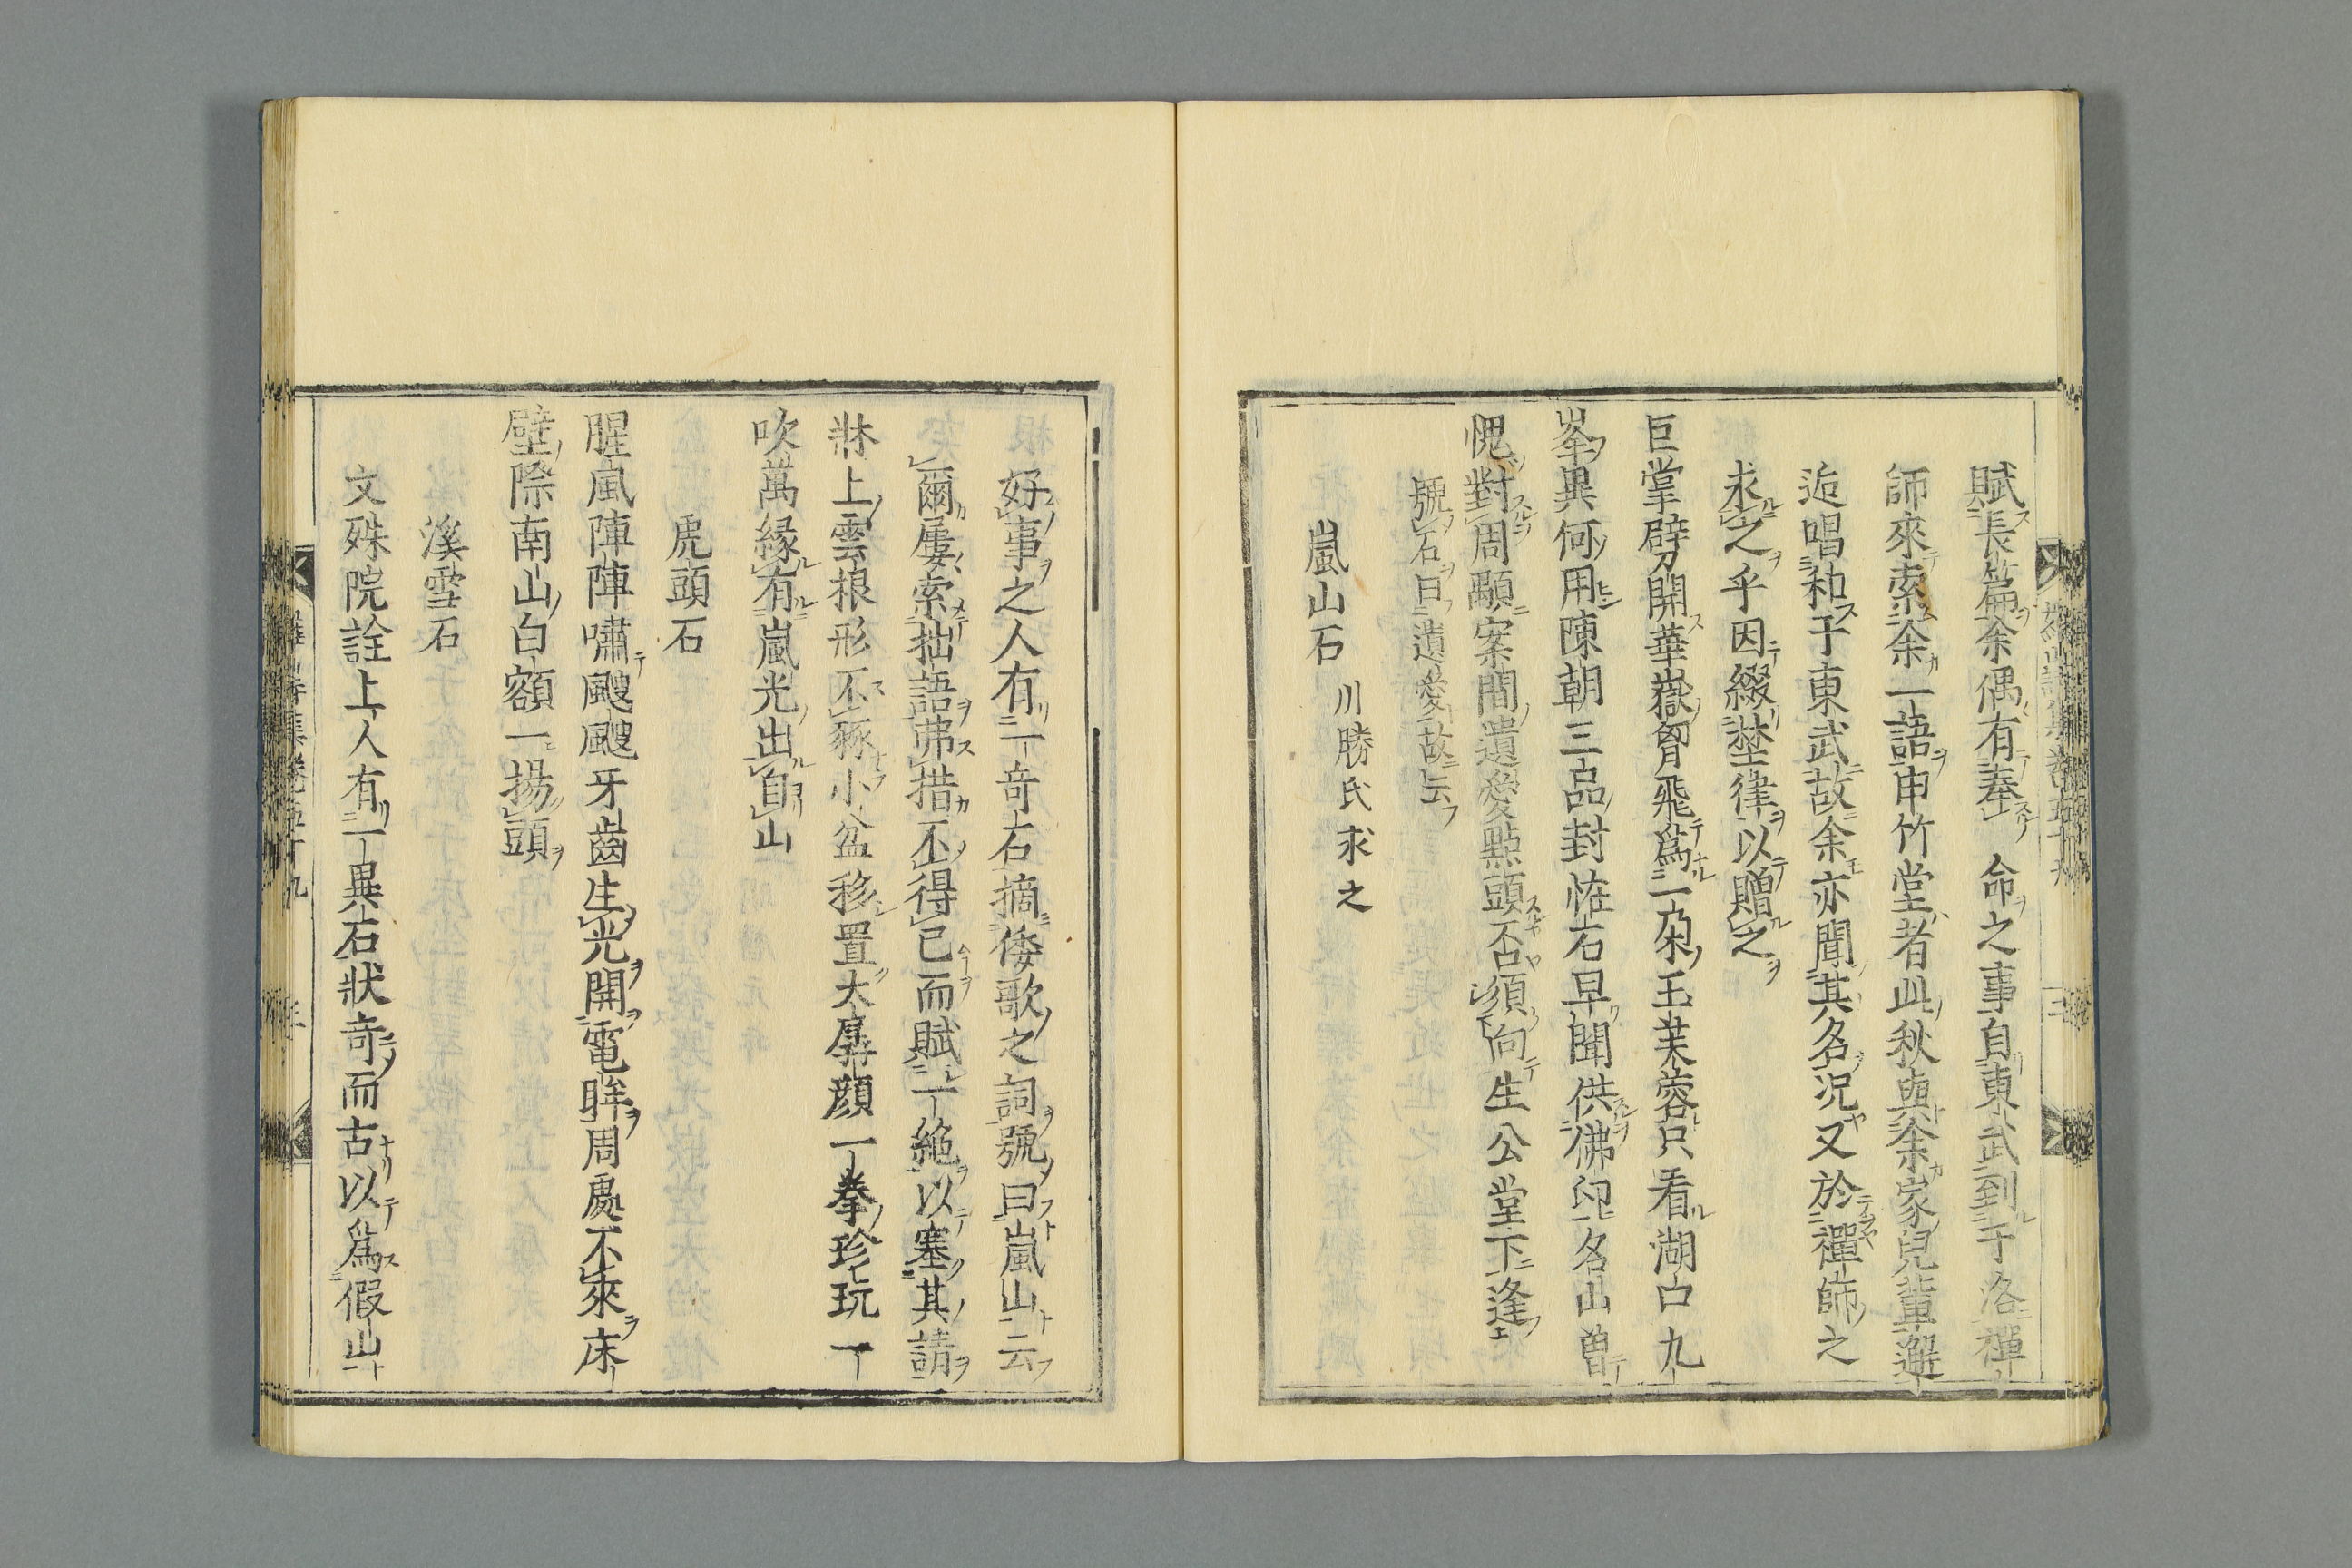 賦長篇余偶有奉　命之事自東武到于洛禪
師來索余一語申竹堂者此秋與余家兒輩邂
逅唱和于東武故余亦聞其名况又於禪師之
求之乎因綴埜律以贈之
巨掌劈開華嶽胷飛爲一朶玉芙蓉只看湖口九
峯異何用陳朝三品封恠石早聞供佛印名山曽
愧對周顒案間遺愛點頭否須向生公堂下逢
號石曰遺愛故云
嵐山石　川勝氏求之
好事之人有一奇石摘倭歌之詞號曰嵐山云
爾屢索拙語弗措不得已而賦一絶以塞其請
牀上雲根形不豚小盆移置大孱顔一拳珍玩一
吹萬縁有嵐光出自山
虎頭石
腥風陣陣嘯颼颼牙齒生光開電眸周處不來床
壁際南山白額一揚頭
溪雪石
文殊院詮上人有一異石狀奇而古以爲假山